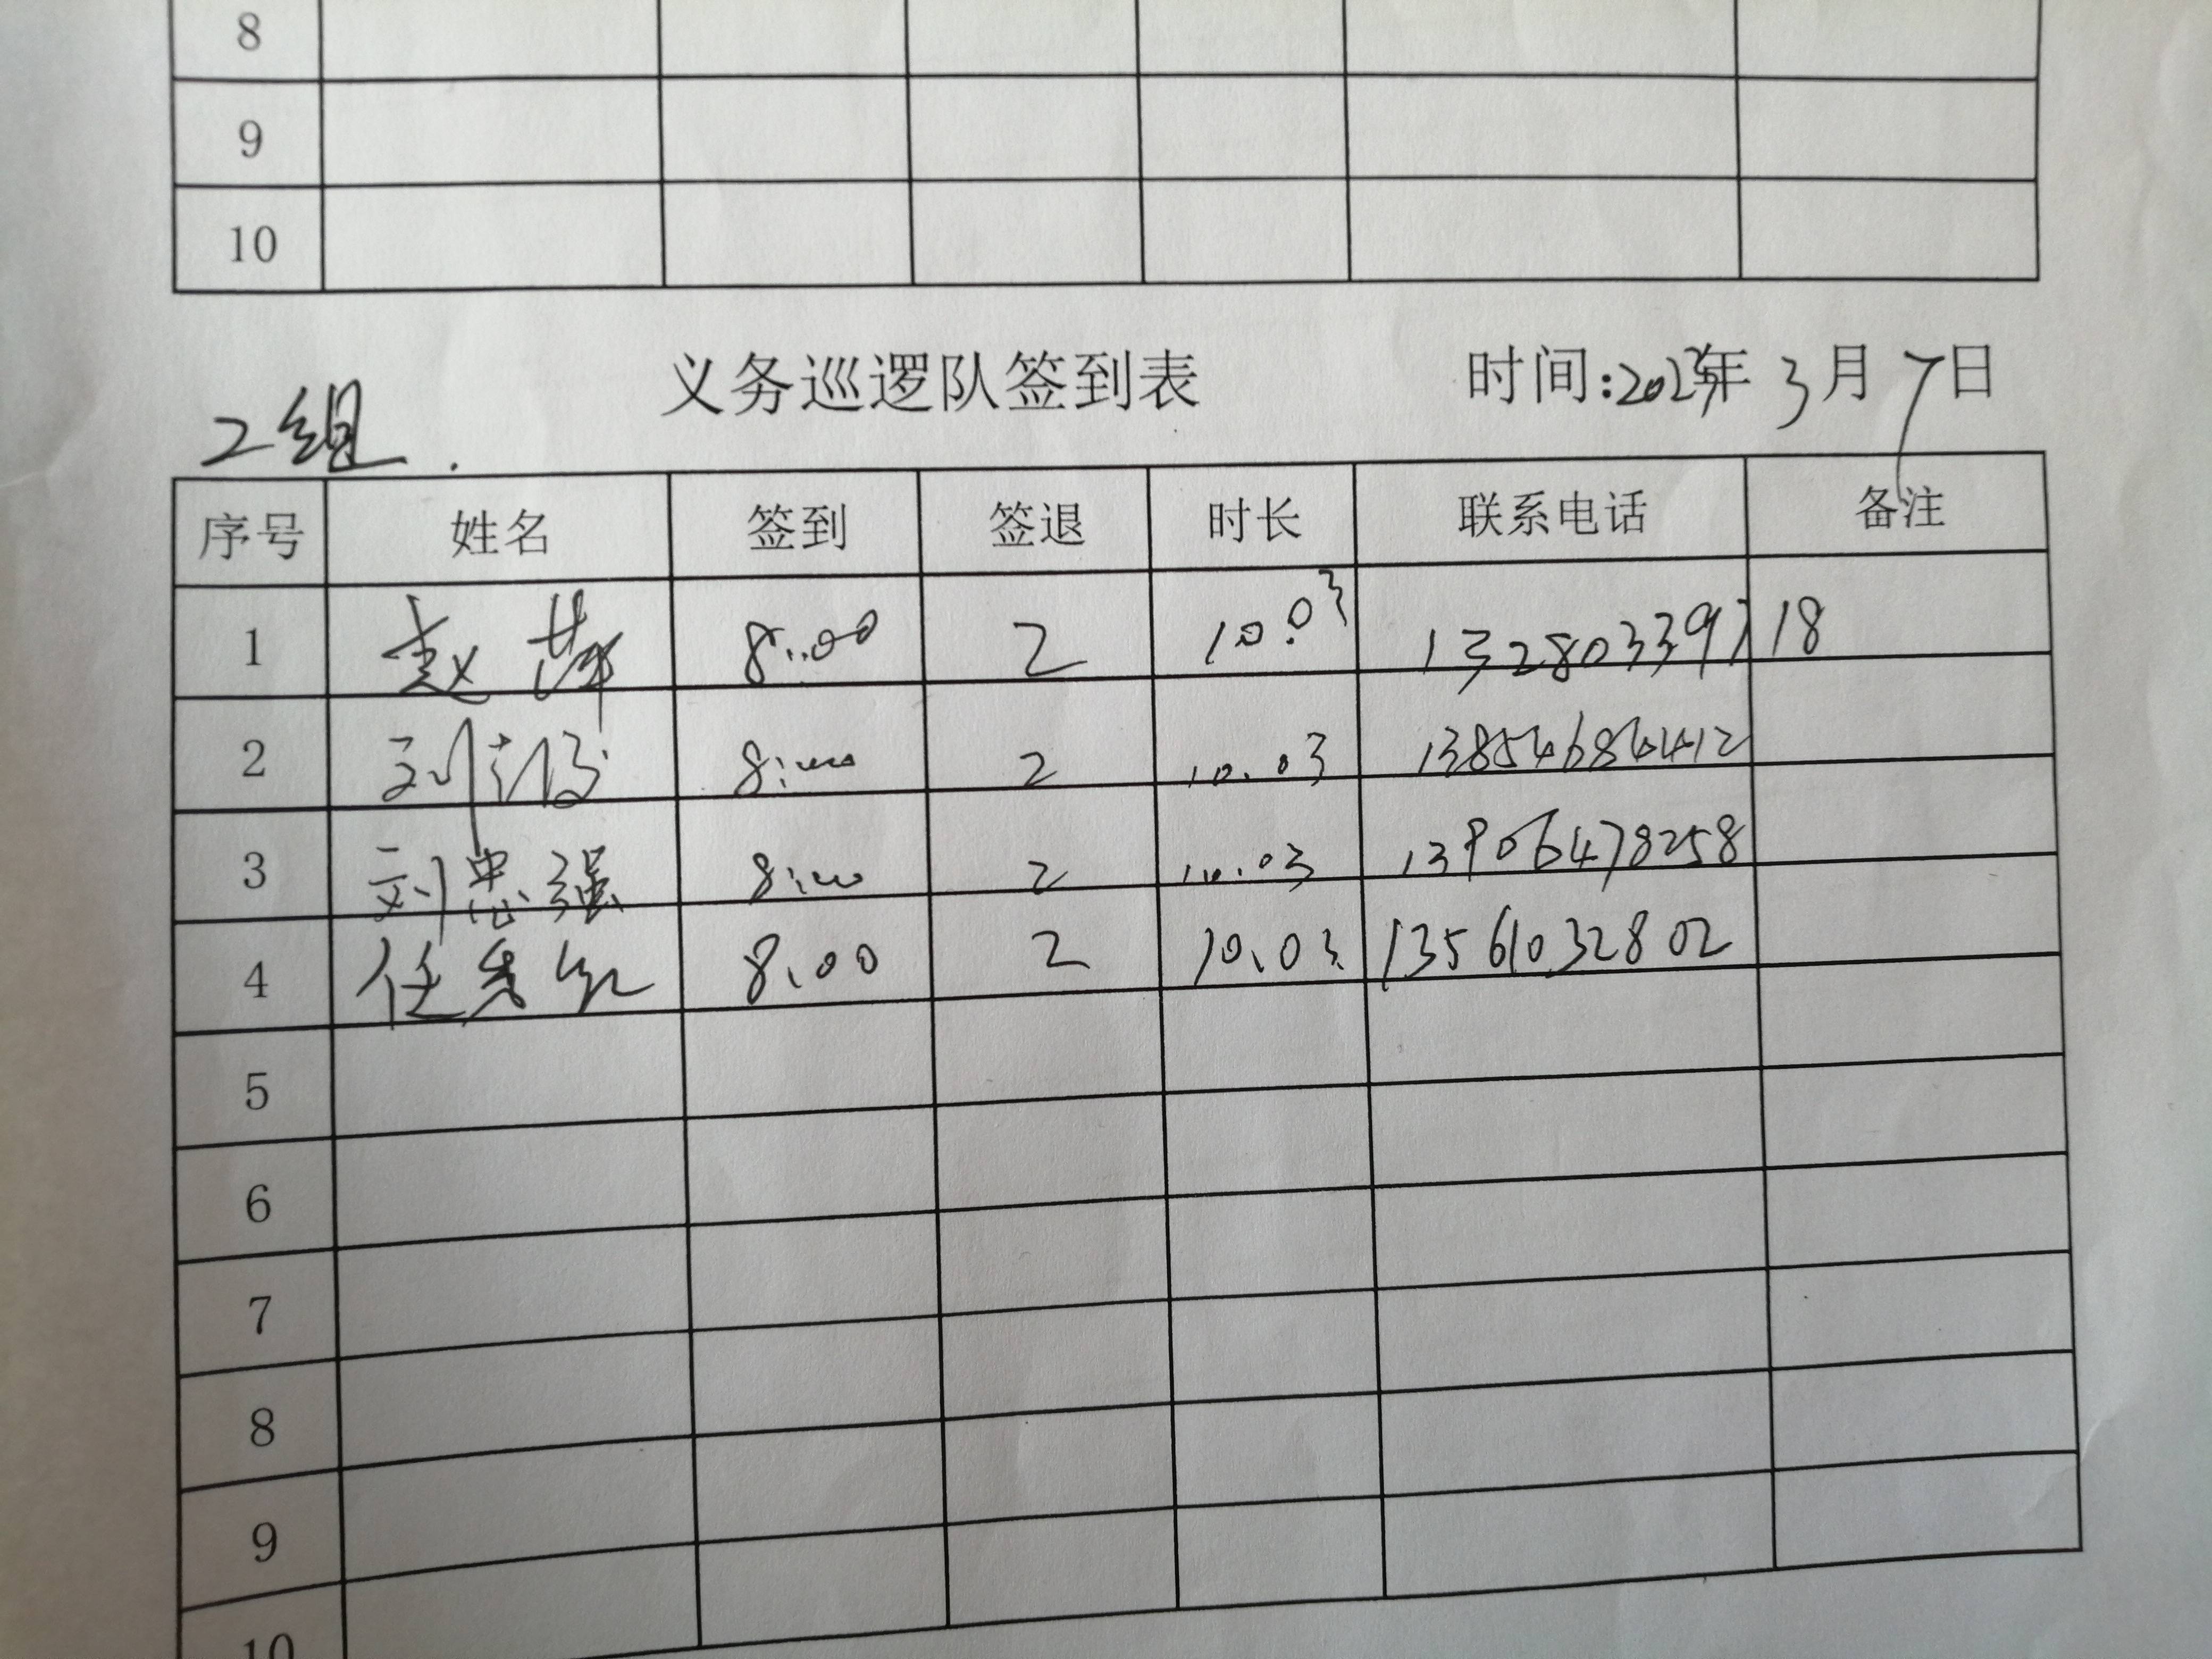 8
9
10
义务巡逻队签到表 时间:2023年3月7日
2组.
序号 姓名 签到 签退 时长 联系电话 备注
1 赵 8:00 2 10.03 1328033971 18
2 刘 8:00 2 10.03 13854684412
3 刘忠强 8:00 2 10.03 13906478258
4 任秀红 8.00 2 10.03 13561032802
5
6
7
8
9
10